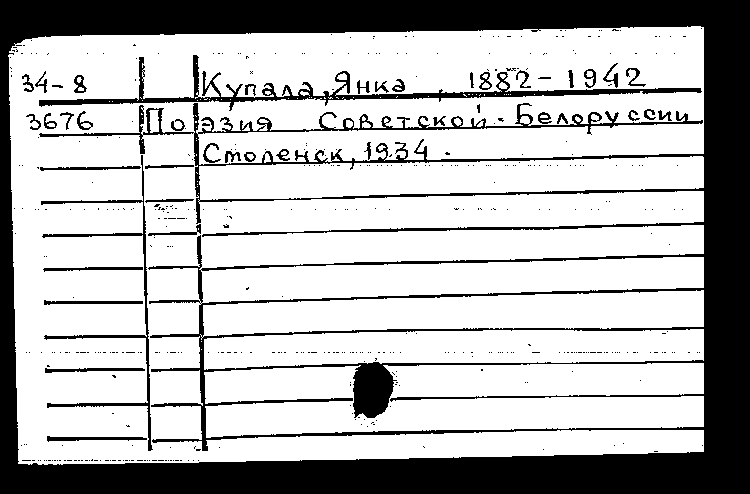 34-8 Купала, Янка, 1882-1942
3676 Поэзия Советской Белоруссии
Смоленск, 1934.